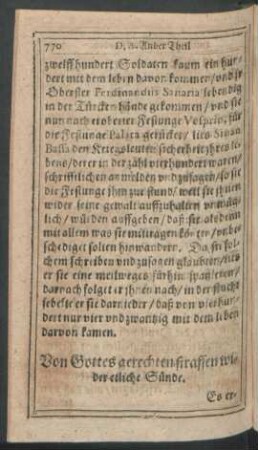 770 D. A. Ander Theil
zwelffhundert Soldaten kaum ein hun-
dert mit dem leben davon kommen / und ihr
Oberster Ferdinandus Samaria lebendig
in der Türcken hände gekommen / und sie
nun nach eroberter Festunge Vesprin, für
die Festunge Palota gerücket / lies Sinan
Bassa den Kriegsleuten sicherheit ihres le-
bens / derer in der zahl vierhundert waren /
schrifftlichen anmelden und zusagen / so sie
die Festunge ihm zur stund / weil sie ihnen
wider seine gewalt auffzuhalten unmüg-
lich / würden auffgeben / daß sie alsdenn
mit allem was sie mittragen könten / unbe-
schediget solten hinwandern. Da sie sol-
chem schreiben und zusagen glaubten / lies
er sie eine meilweges fürhin spatzieren /
darnach folget er ihnen nach / in der flucht
sebelt er sie darnieder / daß von vierhun-
dert nur vier und zwantzig mit dem leben
darvon kamen.
Von Gottes gerechten straffen wi-
der etliche Sünde.
Es er-